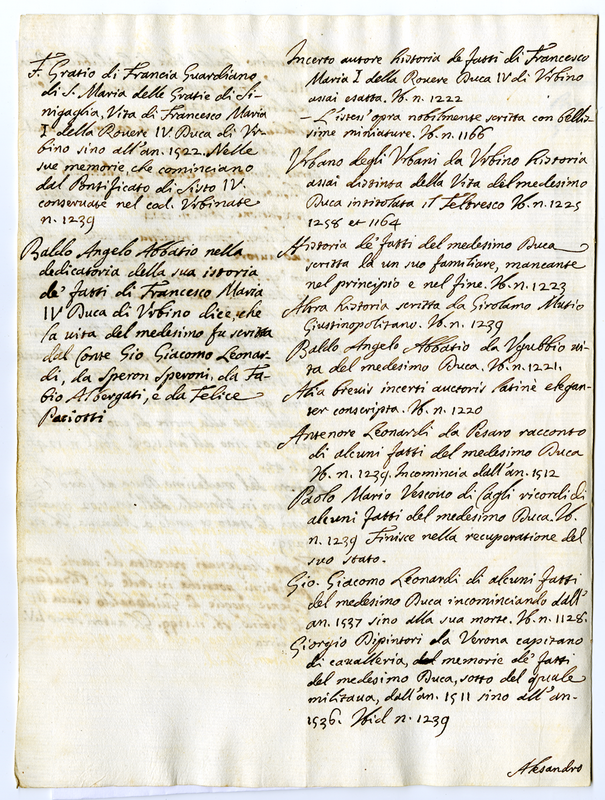 F. Gratio di Francia Guardiano
di S. Maria delle Gratie di Si-
nigaglia, Vita di Francesco Maria
I della Rouere IV Duca di Vr-
bino sino all'an. 1522. Nelle
sue memorie, che cominciano
dal Pontificato di Sisto IV.
conseruate nel cod. Vrbinate
n. 1239
Baldo Angelo Abbatio nella
dedicatoria della sua istoria
de' fatti di Francesco Maria
IV Duca di Vrbino dice, che
la uita del medesimo fu scritta
dal Conte Gio. Giacomo Leonar-
di, da Speron Speroni, da Fa-
bio Albergati, e da Felice
Paciotti
Incerto autore historia de fatti di Francesco
Maria I della Rouere Duca IV di Vrbino
assai esatta. Vb. n. 1222
– L'istess' opra nobilmente scritta con bellis-
sime miniature. Vb. n. 1166
Vrbano degli Vrbani da Vrbino historia
assai distinta della Vita del medesimo
Duca intitolata il Feltresco Vb. n. 1225
1258 et 1164
Historia de' fatti del medesimo Duca
scritta da un suo familiare, mancante
nel principio e nel fine. Vb. n. 1223
Altra historia scritta da Girolamo Mutio
Giustinopolitano. Vb. n. 1239
Baldo Angelo Abbatio da Vgubbio ui-
ta del medesimo Duca. Vb. n. 1221.
Alia breuis incerti auctoris latinè elegan-
ter conscripta. Vb. n. 1220
Antenore Leonardi da Pesaro racconto
di alcuni fatti del medesimo Duca
Vb. n. 1239. Incomincia dall'an. 1512
Paolo Mario Vescouo di Cagli ricordi di
alcuni fatti del medesimo Duca. Vb.
n. 1239 Finisce nella recuperatione del
suo stato.
Gio. Giacomo Leonardi di alcuni fatti
del medesimo Duca incominciando dall'
an. 1537 sino alla sua morte. Vb. n. 1128.
Giorgio Dipintori da Verona capitano
di cavalleria, memorie de' fatti
del medesimo Duca, sotto del quale
militaua, dall'an. 1511 sino all'an.
1536. Ibid n. 1239
Alesandro